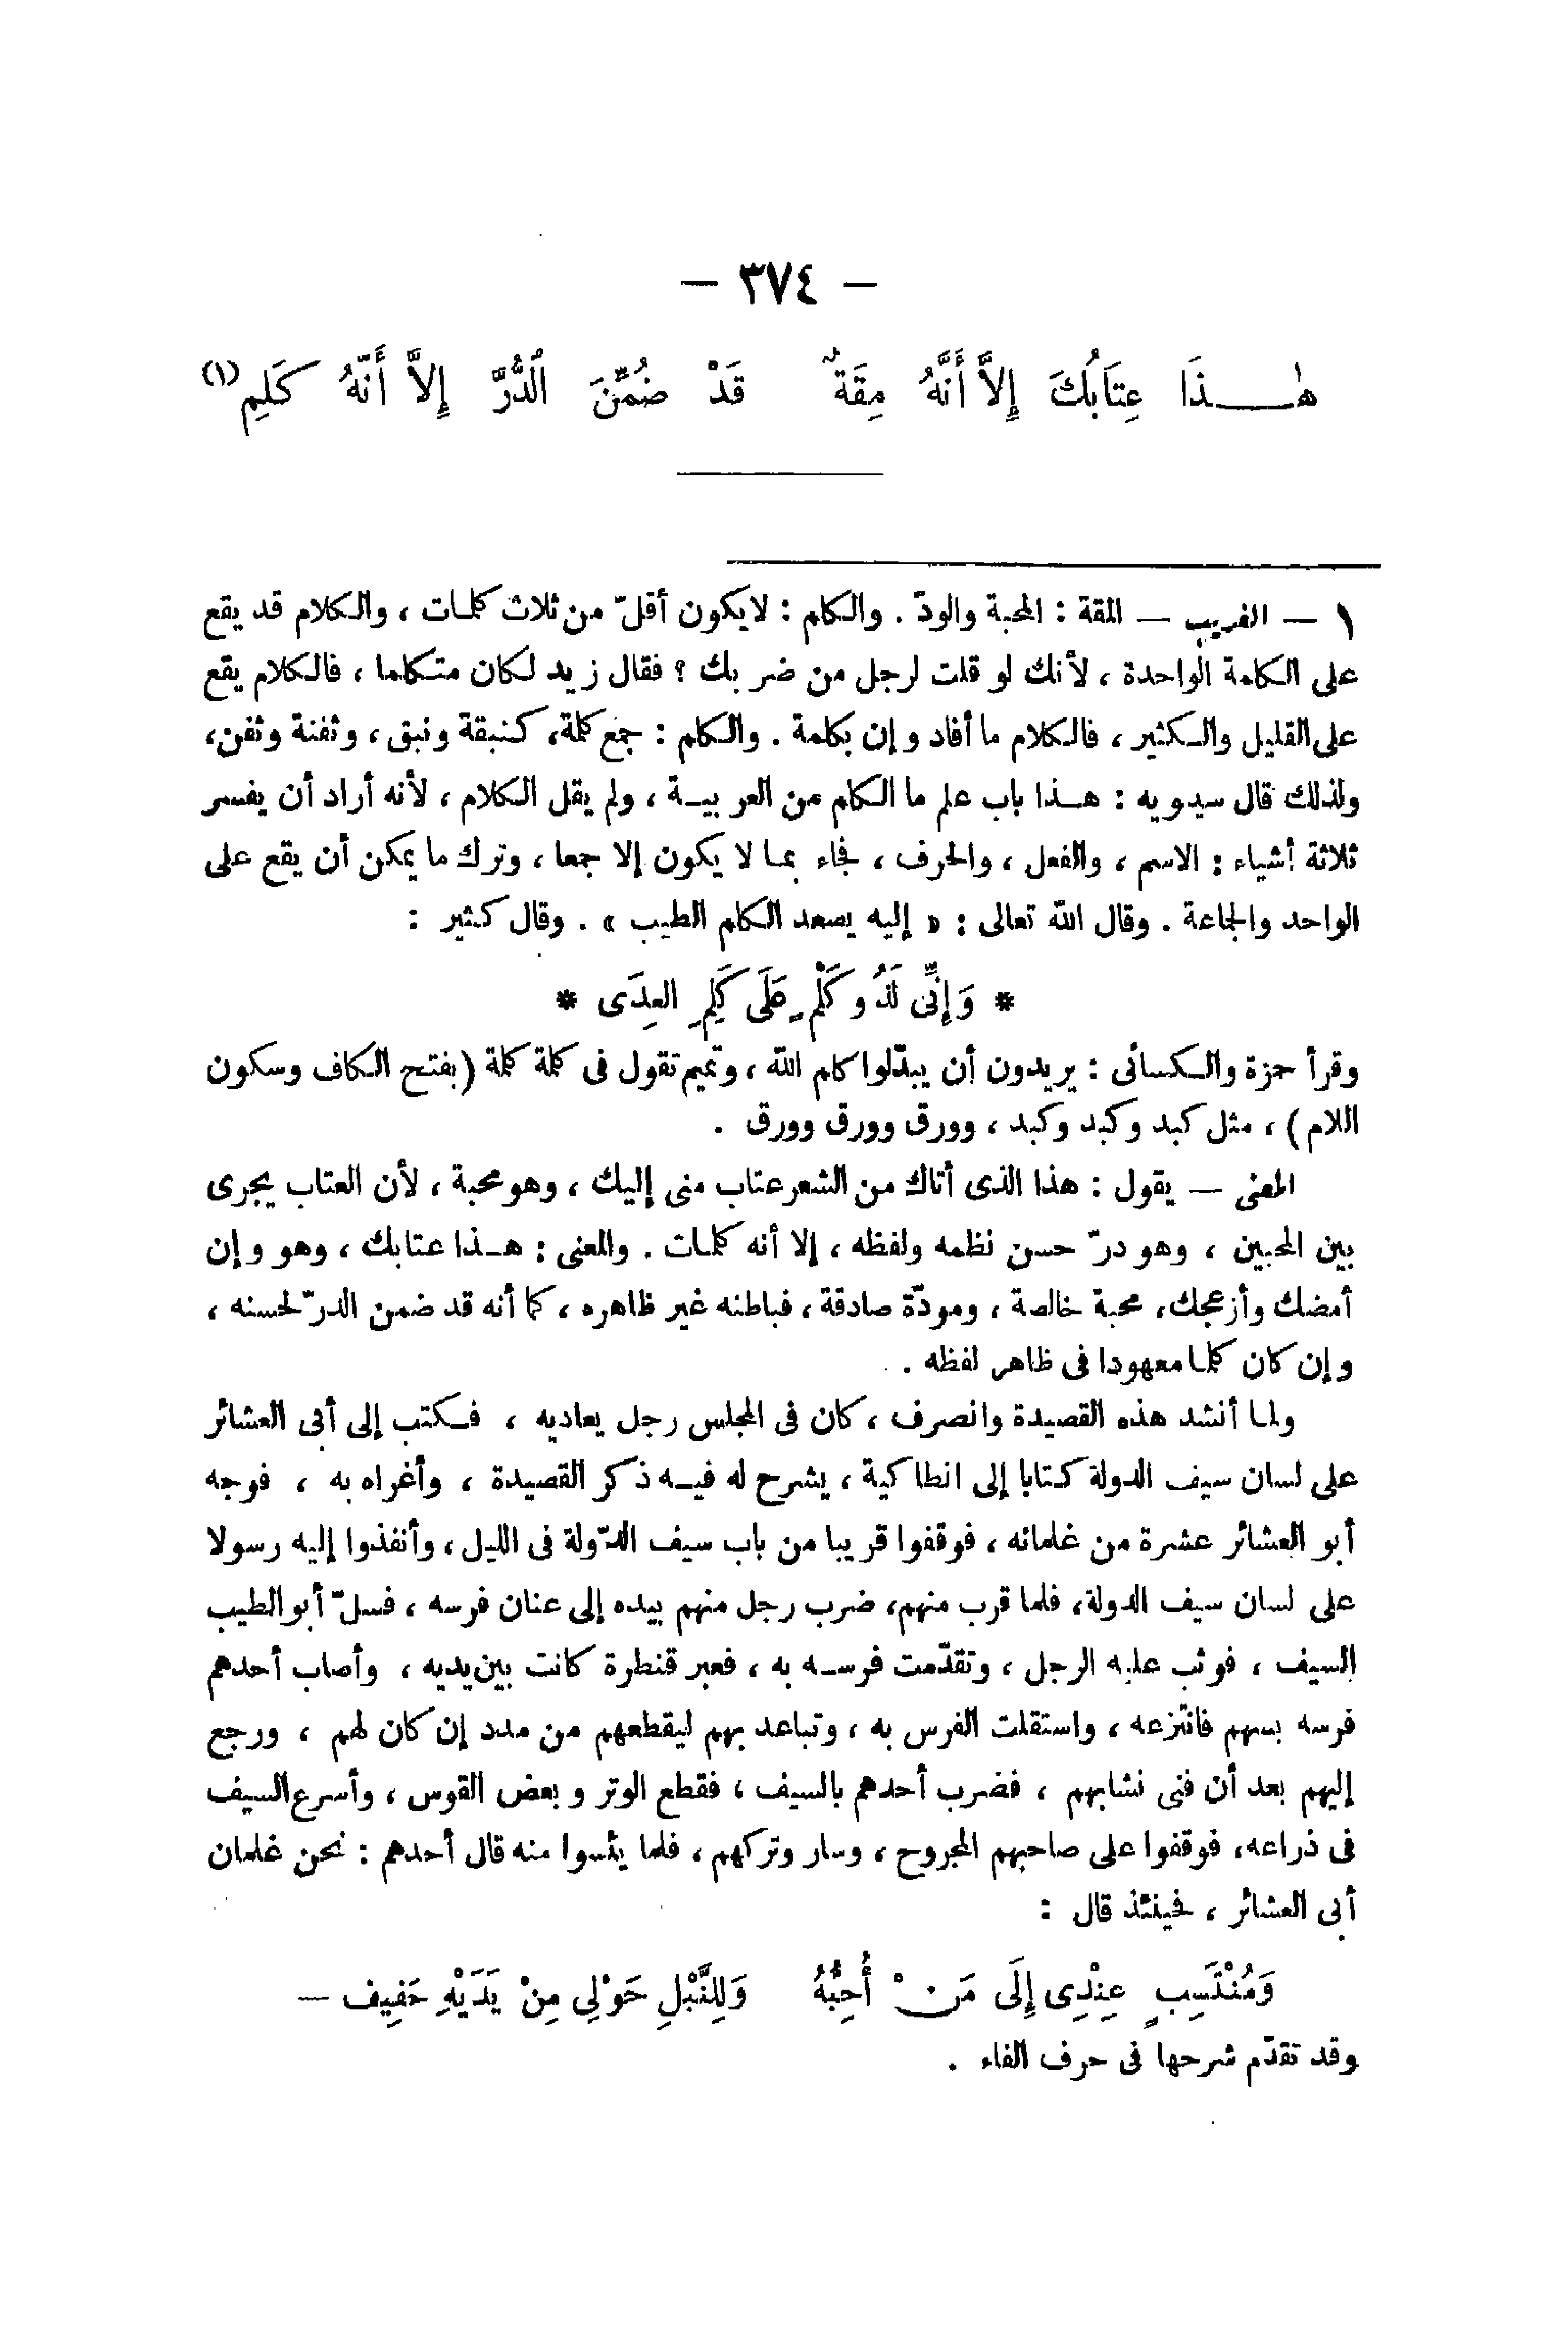 — ٣٧٤ —
هٰـــذَا عِتَابُكَ إِلاَّ أَنَّهُ مِقَةٌ قَدْ ضُمِّنَ الدُّرَّ إِلاَّ أَنَّهُ كَلِم (١)
١ — الغريب — المقة : المحبة والودّ . والكلم : لايكون أقلّ من ثلاث كلمات ، والكلام قد يقع
على الكلمة الواحدة ، لأنك لو قلت لرجل من ضربك ؟ فقال زيد لكان متكلما ، فالكلام يقع
على القليل والكثير ، فالكلام ما أفاد وإن بكلمة . والكلم : جمع كلمة، كنبقة ونبق ، وثفنة وثفن،
ولذلك قال سيبويه : هــذا باب علم ما الكلم من العربيــة ، ولم يقل الكلام ، لأنه أراد أن يفسر
ثلاثة أشياء : الاسم ، والفعل ، والحرف ، فجاء بمـا لا يكون إلا جمعا ، وترك ما يمكن أن يقع على
الواحد والجماعة . وقال الله تعالى : « إليه يصعد الكلم الطيب » . وقال كثير :
* وَإِنِّى لَذُو كَلْمٍ عَلَى كَلِمِ العِدَى *
وقرأ حمزة والكسائى : يريدون أن يبدّلوا كلم الله ، وتميم تقول فى كلمة كلمة (بفتح الكاف وسكون
اللام) ، مثل كبد وكبد وكبد ، وورق وورق وورق .
المعنى — يقول : هذا الذى أتاك من الشعر عتاب منى إليك ، وهو محبة ، لأن العتاب يجرى
بين المحبين ، وهو درّ حسن نظمه ولفظه ، إلا أنه كلمات . والمعنى : هــذا عتابك ، وهو وإن
أمضك وأزعجك، محبة خالصة ، ومودّة صادقة ، فباطنه غير ظاهره ، كما أنه قد ضمن الدرّ لحسنه ،
وإن كان كلما معهودا فى ظاهر لفظه .
ولما أنشد هذه القصيدة وانصرف ، كان فى المجلس رجل يعاديه ، فكتب إلى أبى العشائر
على لسان سيف الدولة كتابا إلى انطاكية ، يشرح له فيــه ذكر القصيدة ، وأغراه به ، فوجه
أبو العشائر عشرة من غلمانه ، فوقفوا قريبا من باب سيف الدّولة فى الليل ، وأنفذوا إليه رسولا
على لسان سيف الدولة، فلما قرب منهم، ضرب رجل منهم بيده إلى عنان فرسه ، فسلّ أبو الطيب
السيف ، فوثب عليه الرجل ، وتقدّمت فرســه به ، فعبر قنطرة كانت بين يديه ، وأصاب أحدهم
فرسه بسهم فانتزعه ، واستقلت الفرس به ، وتباعد بهم ليقطعهم من مدد إن كان لهم ، ورجع
إليهم بعد أن فنى نشابهم ، فضرب أحدهم بالسيف ، فقطع الوتر وبعض القوس ، وأسرع السيف
فى ذراعه، فوقفوا على صاحبهم المجروح ، وسار وتركهم ، فلما يئسوا منه قال أحدهم : نحن غلمان
أبى العشائر ، فحينئذ قال :
وَمُنْتَسِبٍ عِنْدِى إِلَى مَنْ أُحِبُّهُ وَلِلنَّبْلِ حَوْلِى مِنْ يَدَيْهِ حَفِيف —
وقد تقدّم شرحها فى حرف الفاء .